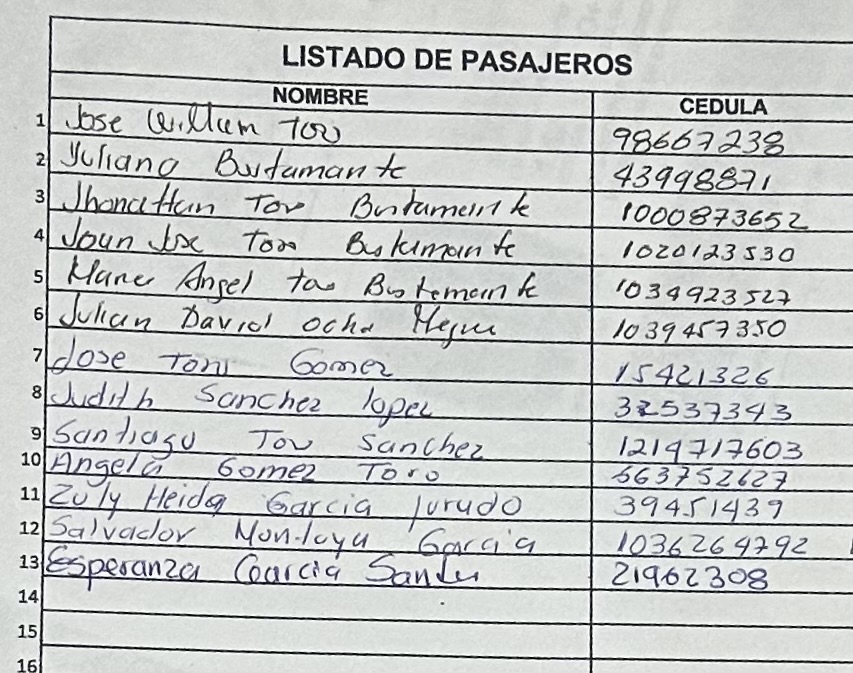 LISTADO DE PASAJEROS
NOMBRE CEDULA
1 Jose William Toro 98667238
2 Yuliana Bustamante 43998871
3 Jhonattan Toro Bustamante 1000873652
4 Juan Jose Toro Bustamante 1020123530
5 Angel Toro Bustamante 1034923527
6 Julian David Ocho 1039457350
7 Jose Toro Gomez 15421326
8 Judith Sanchez lopez 32537343
9 Santiago Toro Sanchez 1214717603
10 Angela Gomez Toro
11 Zuly Heida Garcia Jurado 39451439
12 Salvador Montoya Garcia 1036264792
13 Esperanza Garcia 21962308
14
15
16